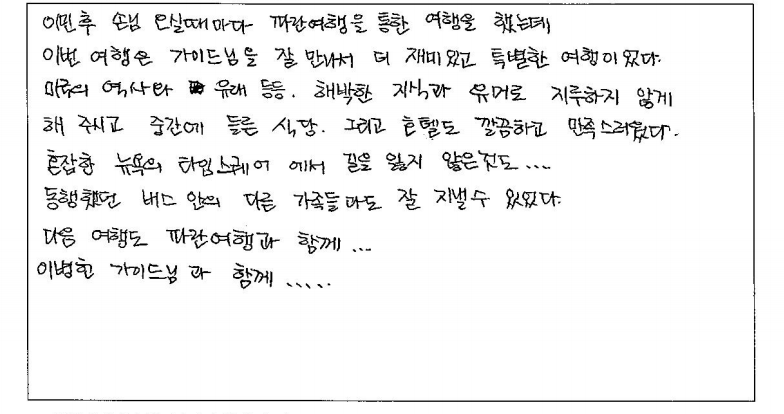 이민후 손님 오실때마다 파란여행을 통한 여행을 했는데
이번 여행은 가이드님을 잘 만나서 더 재미있고 특별한 여행이 있다.
미국의 역사와 유래 등등. 해박한 지식과 유머로 지루하지 않게
해 주시고 중간에 들른 식당. 그리고 호텔도 깔끔하고 만족스러웠다.
혼잡한 뉴욕의 타임스퀘어 에서 길을 잃지 않은것도 ....
동행했던 버스 안의 다른 가족들과도 잘 지낼수 있었다.
다음 여행도 파란여행과 함께 ...
이병헌 가이드님 과 함께 .....